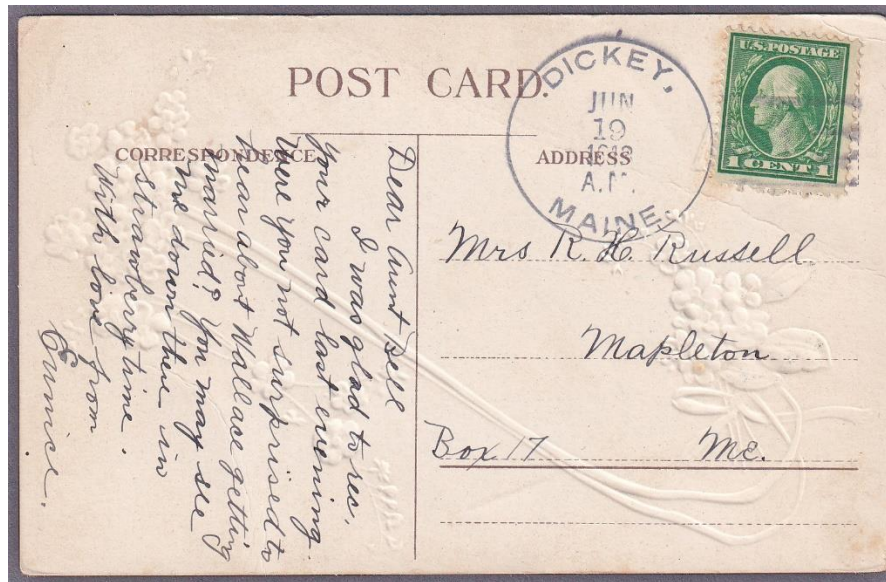 POST CARD.
CORRESPONDENCE
ADDRESS
DICKEY,
JUN
19
A.M.
MAINE.
U.S. POSTAGE
1 CENT 1
Dear Aunt Dell
I was glad to rec.
your card last evening.
Were you not surprised to
hear about Wallace getting
married? You may see
me down there in
strawberry time.
With love from
Eunice.
Mrs R. H. Russell
Mapleton
Box 17 Me.